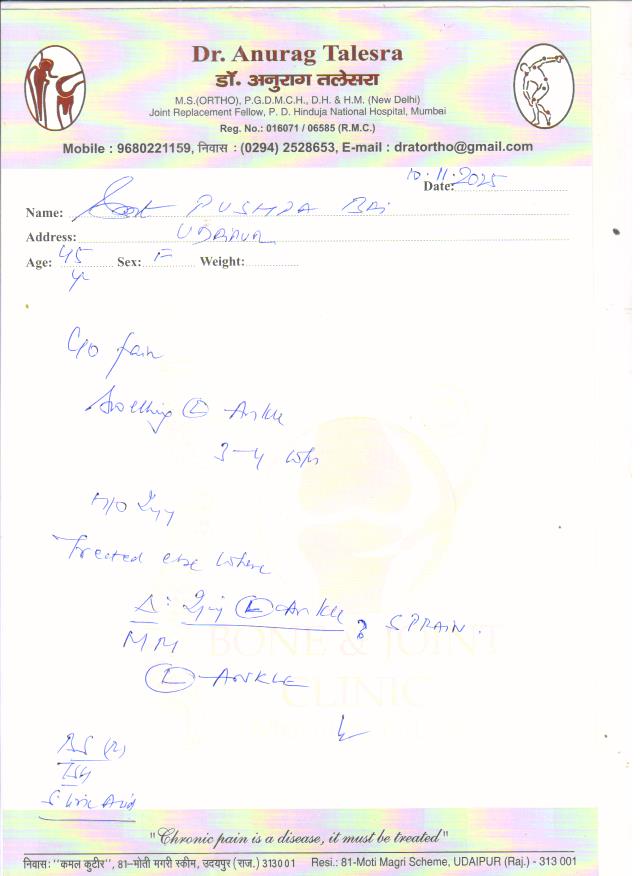 Dr. Anurag Talesra
डॉ. अनुराग तलेसरा
M.S.(ORTHO), P.G.D.M.C.H., D.H. & H.M. (New Delhi)
Joint Replacement Fellow, P. D. Hinduja National Hospital, Mumbai
Reg. No.: 016071 / 06585 (R.M.C.)
Mobile : 9680221159, निवास : (0294) 2528653, E-mail : dratortho@gmail.com
Date: 10.11.2025
Name: PUSHPA BAI
Address:
Age: 45 yr Sex: F Weight:
C/o Pain
Swelling (L) Ankle
3-4 wks
H/O Injy
Treated else where
Δ: Injy (L) Ankle ? SPRAIN.
MM
(L) ANKLE
BONE & JOINT
CLINIC
BS (R)
TSH
S. Uric Acid
"Chronic pain is a disease, it must be treated"
निवास: "कमल कुटीर", 81-मोती मगरी स्कीम, उदयपुर (राज.) 313001 Resi.: 81-Moti Magri Scheme, UDAIPUR (Raj.) - 313 001